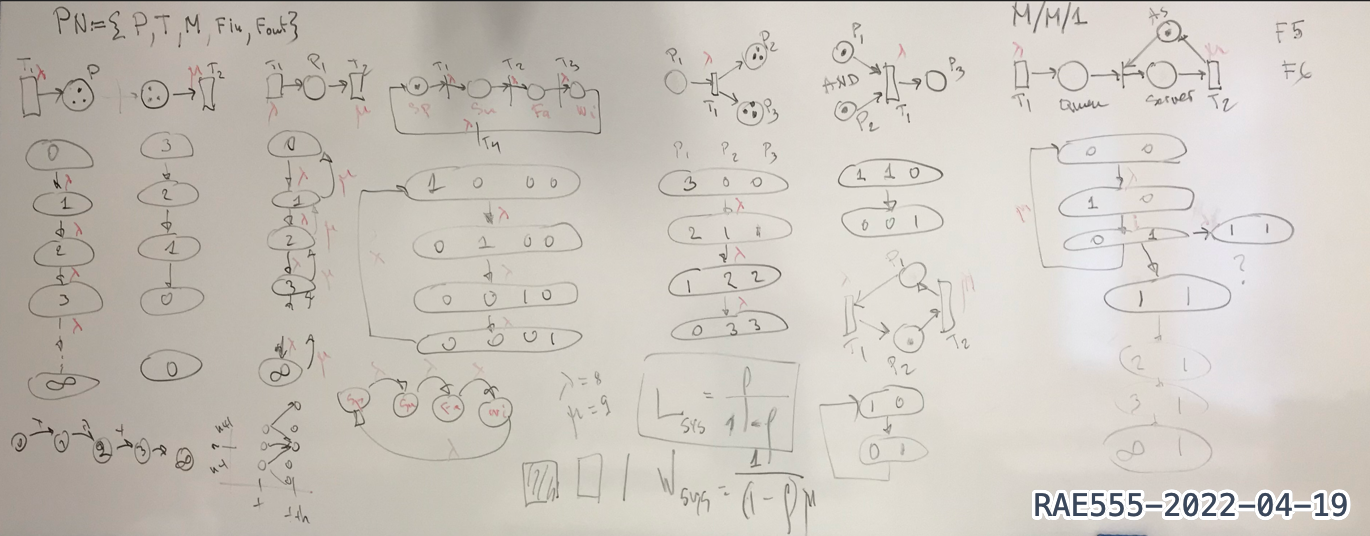 PN:={P,T,M,Fin,Fout}
M/M/1
F5
F6
T1 λ P
μ T2
T1 P1 T2
λ μ
T1 T2 T3
λ λ λ
Sp Su Fa Wi
λ T4
P1 λ P2
T1 P3
P1 λ
AND P3
P2 T1
AS
λ μ
T1 Queue Server T2
0
λ
1
λ
2
λ
3
λ
∞
3
2
1
0
0
0
λ μ
1
λ μ
2
λ μ
3
λ μ
∞
1 0 0 0
λ
0 1 0 0
λ
0 0 1 0
λ
0 0 0 1
λ
P1 P2 P3
3 0 0
λ
2 1 1
λ
1 2 2
λ
0 3 3
1 1 0
0 0 1
P1
λ μ
T1 T2
P2
1 0
0 1
0 0
λ
1 0
0 1
1 1
?
μ
1 1
2 1
3 1
∞ 1
0 1 2 3 ∞
λ λ λ
Sp Su Fa Wi
λ
λ=8
μ=9
Lsys = ρ/1-ρ
Wsys = 1/(1-ρ)μ
RAE555-2022-04-19